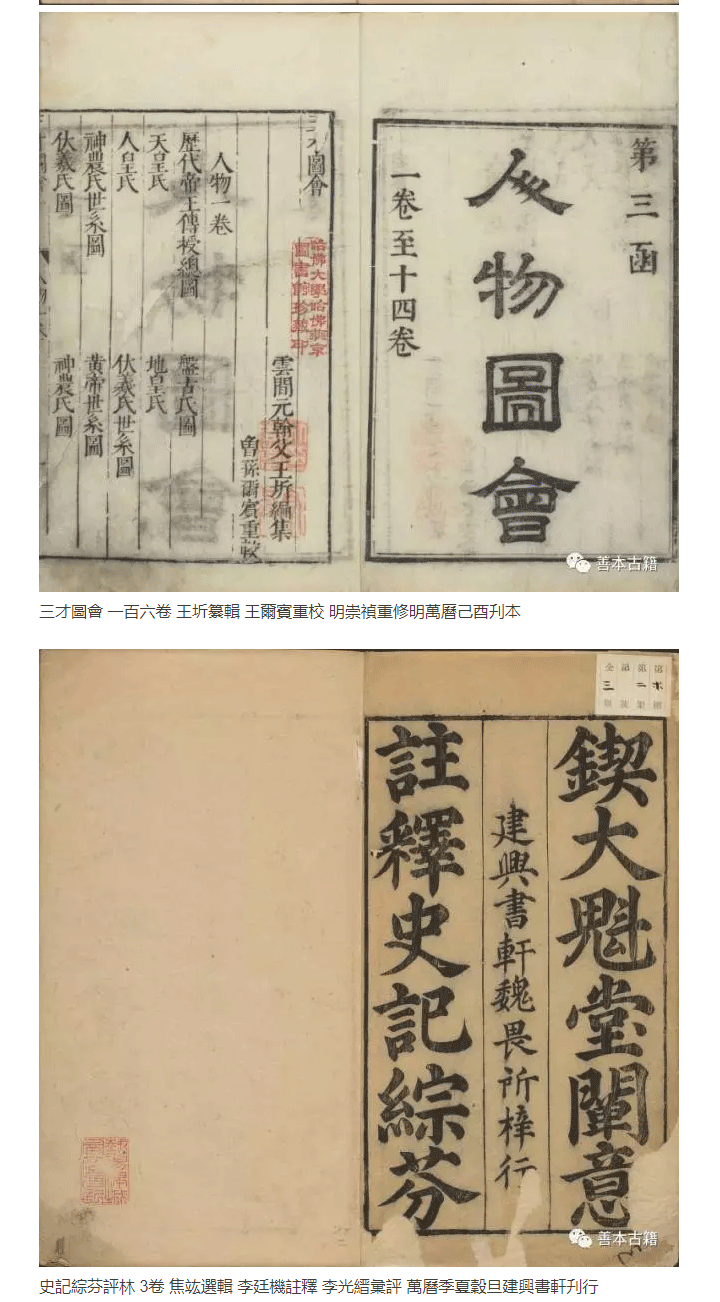 第三函
人物圖會
一卷至十四卷
三才圖會
哈佛大學哈佛燕京
圖書館珍藏印
雲間元翰父王圻編集
曾孫爾賓重較
人物一卷
歷代帝王傳授總圖 盤古氏圖
天皇氏 地皇氏
人皇氏 伏羲氏世系圖
神農氏世系圖 黄帝世系圖
伏羲氏圖 神農氏圖
善本古籍
三才圖會 一百六卷 王圻纂輯 王爾賓重校 明崇禎重修明萬曆己酉刋本
鍥大魁堂闡意
建興書軒魏畏所梓行
註釋史記綜芬
善本古籍
史記綜芬評林 3卷 焦竑選輯 李廷機註釋 李光縉彙評 萬曆季夏穀旦建興書軒刊行